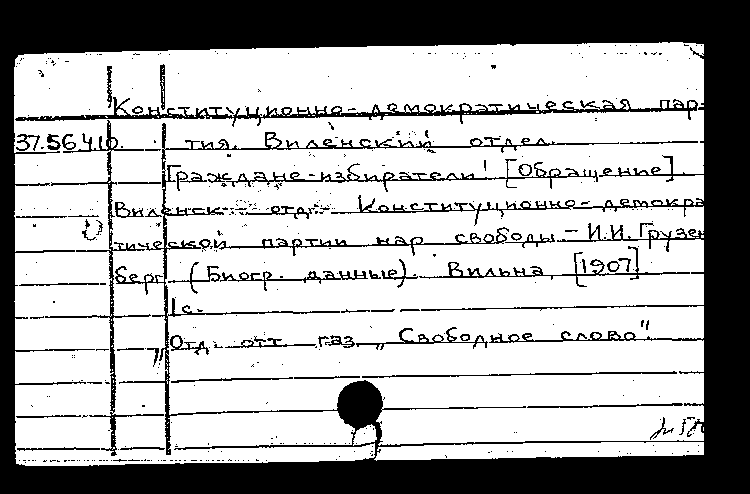 Конституционно-демократическая пар-
37.56.4.10. тия. Виленский отдел.
Граждане-избиратели! [Обращение].
Виленск. отд. Конституционно-демокра
тической партии нар свободы. - И.И. Грузен
берг (Биогр. данные). Вильна, [1907].
1 с.
"Отд. отт. газ. „Свободное слово".